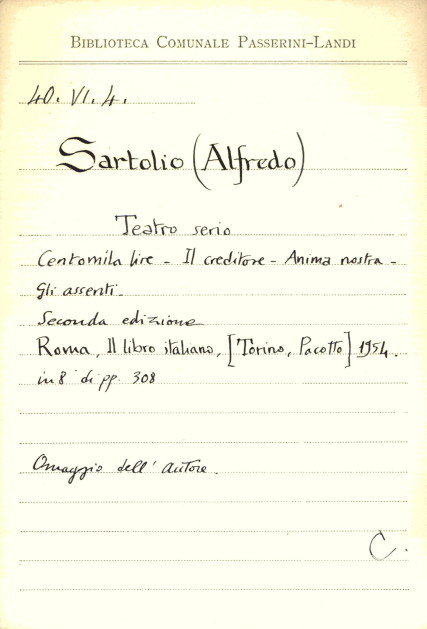 BIBLIOTECA COMUNALE PASSERINI-LANDI
40. VI. 4.
Sartolio (Alfredo)
Teatro serio
Centomila lire - Il creditore - Anima nostra -
Gli assenti.
Seconda edizione
Roma, Il libro italiano, [Torino, Pacotto] 1954.
in 8° di pp. 308
Omaggio dell'autore.
C.